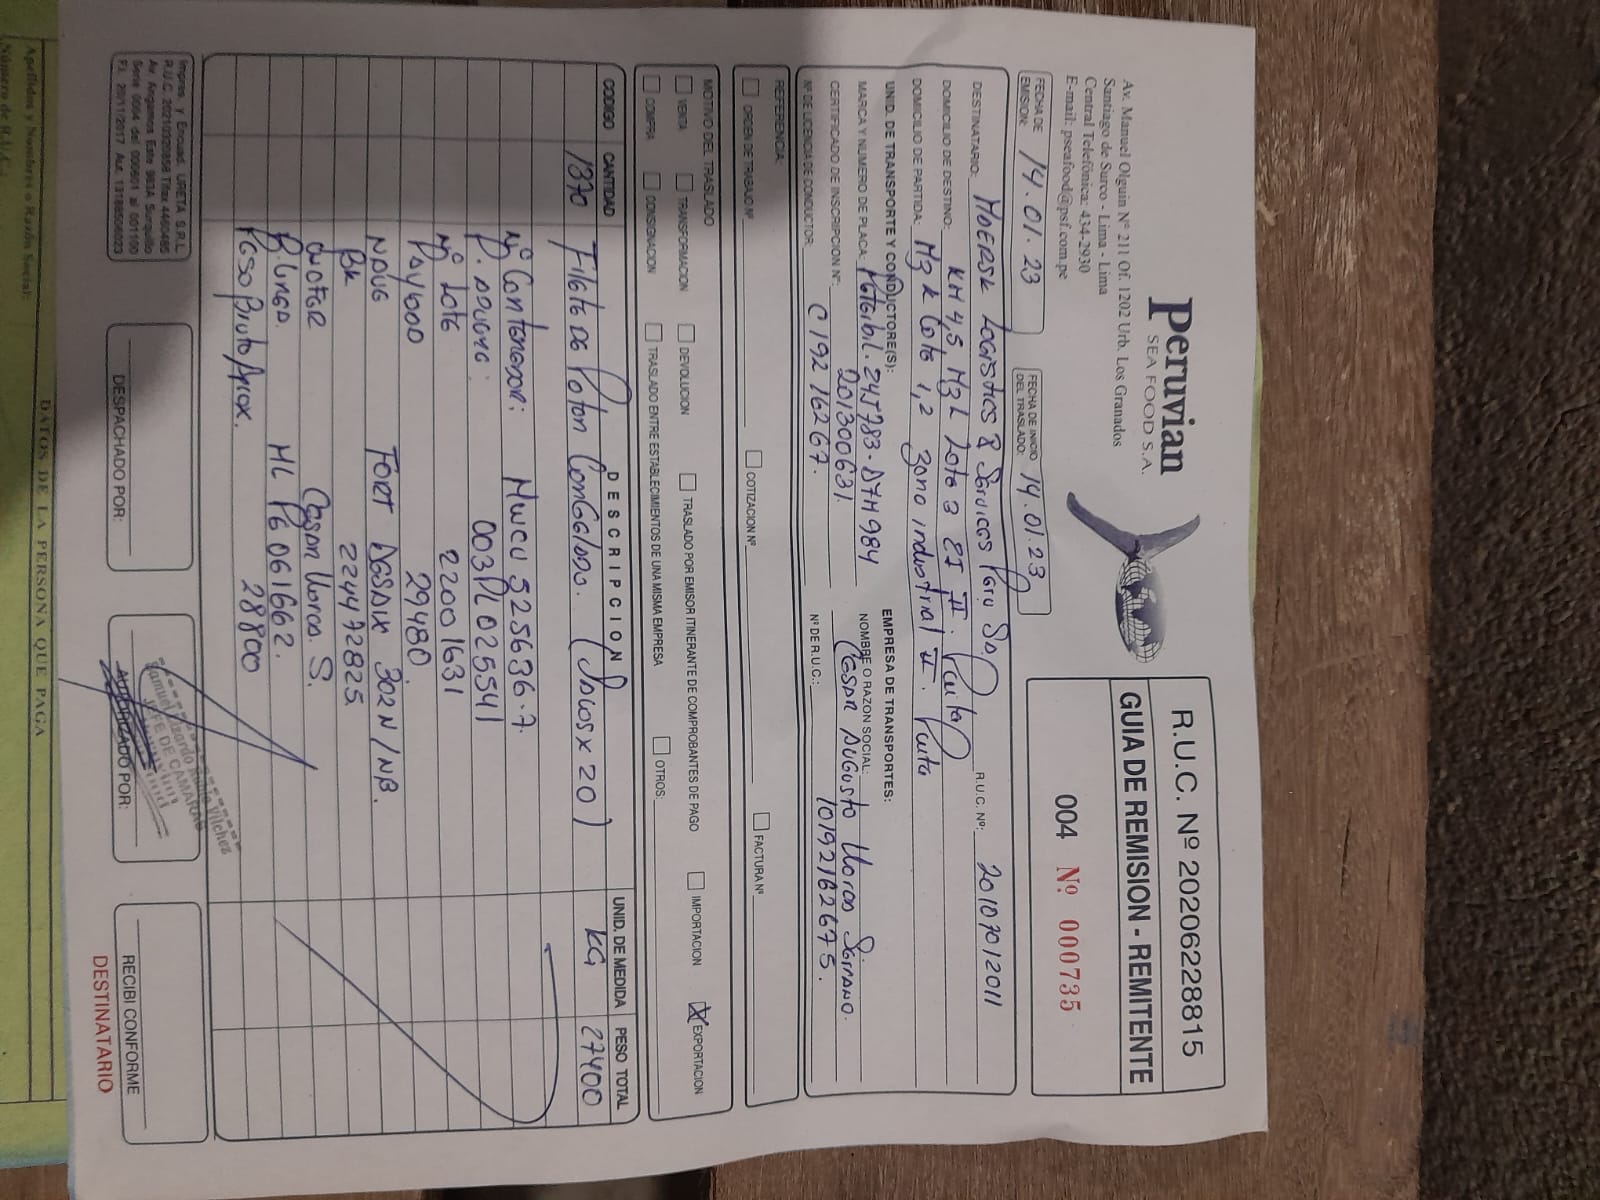 Peruvian
SEA FOOD S.A.
Av. Manuel Olguin Nº 211 Of. 1202 Urb. Los Granados
Santiago de Surco - Lima - Lima
Central Telefónica: 434-2930
E-mail: pseafood@psf.com.pe
R.U.C. Nº 20206228815
GUIA DE REMISION - REMITENTE
004 Nº 000735
FECHA DE EMISION: 14.01.23
FECHA DE INICIO DEL TRASLADO: 14.01.23
DESTINATARIO: Maersk Logistics & Services Peru SA R.U.C. Nº: 20107012011
DOMICILIO DE DESTINO: KM 4,5 Mz L Lote 3 ZI II. Paita
DOMICILIO DE PARTIDA: Mz K Lote 1,2 zona industrial II. Paita
UNID. DE TRANSPORTE Y CONDUCTORE(S): EMPRESA DE TRANSPORTES:
MARCA Y NUMERO DE PLACA: D7M984 NOMBRE O RAZON SOCIAL: Cesar Augusto
CERTIFICADO DE INSCRIPCION Nº: 201300631.
Nº DE LICENCIA DE CONDUCTOR: C19216267. Nº DE R.U.C.: 10192162675.
REFERENCIA:
ORDEN DE TRABAJO Nº COTIZACION Nº FACTURA Nº
MOTIVO DEL TRASLADO
VENTA TRANSFORMACION DEVOLUCION TRASLADO POR EMISOR ITINERANTE DE COMPROBANTES DE PAGO IMPORTACION X EXPORTACION
COMPRA CONSIGNACION TRASLADO ENTRE ESTABLECIMIENTOS DE UNA MISMA EMPRESA OTROS:
CODIGO CANTIDAD DESCRIPCION UNID. DE MEDIDA PESO TOTAL
1370 Filete De Poton Congelado. (Sacos x 20) KG 27400
Nº Contenedor: MWCU 525636-7.
P. Aduana: 003PL025541
Nº Lote 22001631
Payload 29480.
Nave FORT DESAIX 302N/NB.
BK 224472825
Cesar S.
ML PE 0611662.
Peso Bruto/Aprox. 28800
Impres. y Encuad. URETA S.R.L.
Av. Angamos Este 983A Surquillo
Serie 0004 del 000601 al 001100
F.I. 20/11/2017
DESPACHADO POR:
JEFE DE CAMARAS
AUTORIZADO POR:
RECIBI CONFORME
DESTINATARIO
DATOS DE LA PERSONA QUE PAGA
Apellidos y Nombres o Razón Social: